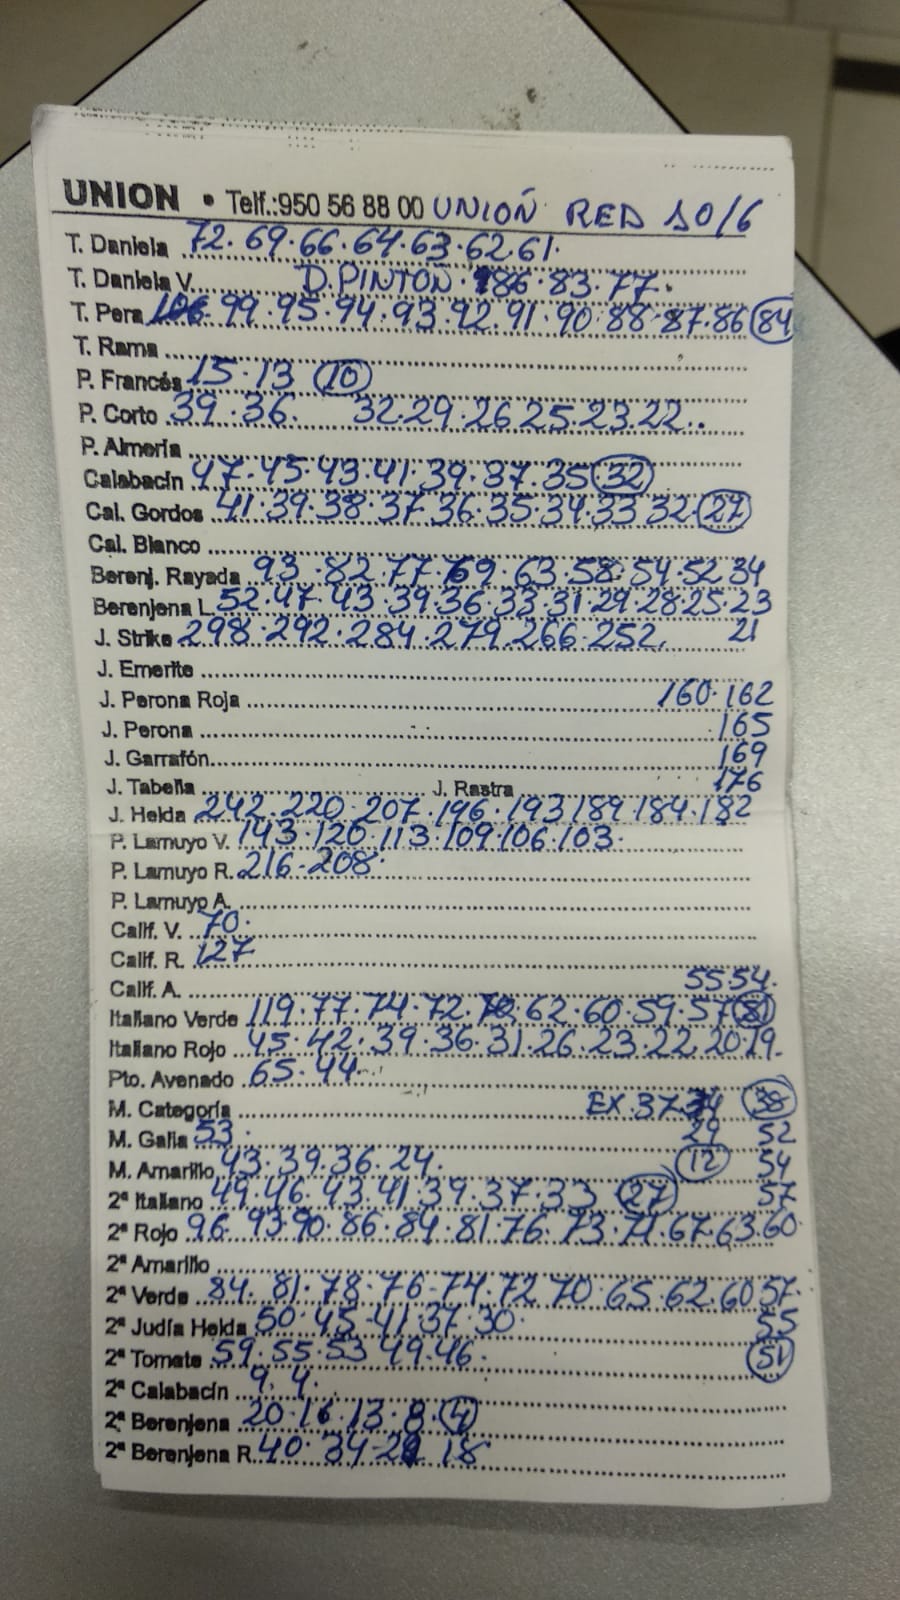 UNION • Telf.:950 56 88 00 UNIOÑ RED 10/6
T. Daniela 72.69.66.64.63.62.61.
T. Daniela V. D.PINTOÑ. 86.83.77.
T. Pera 99.95.94.93.92.91.90.88.87.86 84
T. Rama
P. Francés 15.13 10
P. Corto 39.36. 32.29.26 25.23.22..
P. Almería
Calabacín 47.45.43.41.39.37.35 32
Cal. Gordos 41.39.38.37.36.35.34.33 32. 27
Cal. Blanco
Berenj. Rayada 93.82.77.69.63.58.54.52 34
Berenjena L. 52.47.43.39.36.33.31.29.28.25.23
21
J. Strike 298.292.284.279.266.252.
J. Emerite
J. Perona Roja 160.162
J. Perona 165
J. Garrafón 169
J. Tabella J. Rastra 176
J. Helda 242.220.207.196.193 189.184.182
P. Lamuyo V. 143.120.113.109.106.103.
P. Lamuyo R. 216-208
P. Lamuyo A.
Calif. V. 70.
Calif. R. 127
Calif. A. 55 54.
Italiano Verde 119.77.74.72. 62.60.59.57
Italiano Rojo 45.42.39.36.31.26.23.22.20.19.
Pto. Avenado 65.44.
M. Categoría EX.37 38
M. Galia 53. 29 52
M. Amarillo 43.39.36.24. 12 54
2ª Italiano 49.46.43.41.39.37.33 27 57
2ª Rojo 96.93.90.86.84.81.76.73.71.67.63.60.
2ª Amarillo
2ª Verde 84.81.78.76-74.72 70.65.62.60 57.
2ª Judía Helda 50.45.41.37.30. 55
2ª Tomate 59.55.53 49.46. 51
2ª Calabacín 9.4.
2ª Berenjena 20.16.13.8. 4
2ª Berenjena R. 40.34- 18